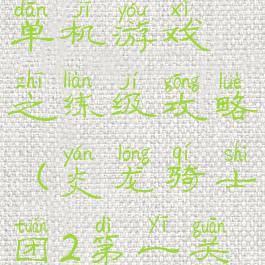 dān jī yóu xì
单机游戏
zhī liàn jí gōng lüè
之练级攻略
yán lóng qí shì
（炎龙骑士
tuán dì yī guān
团2第一关